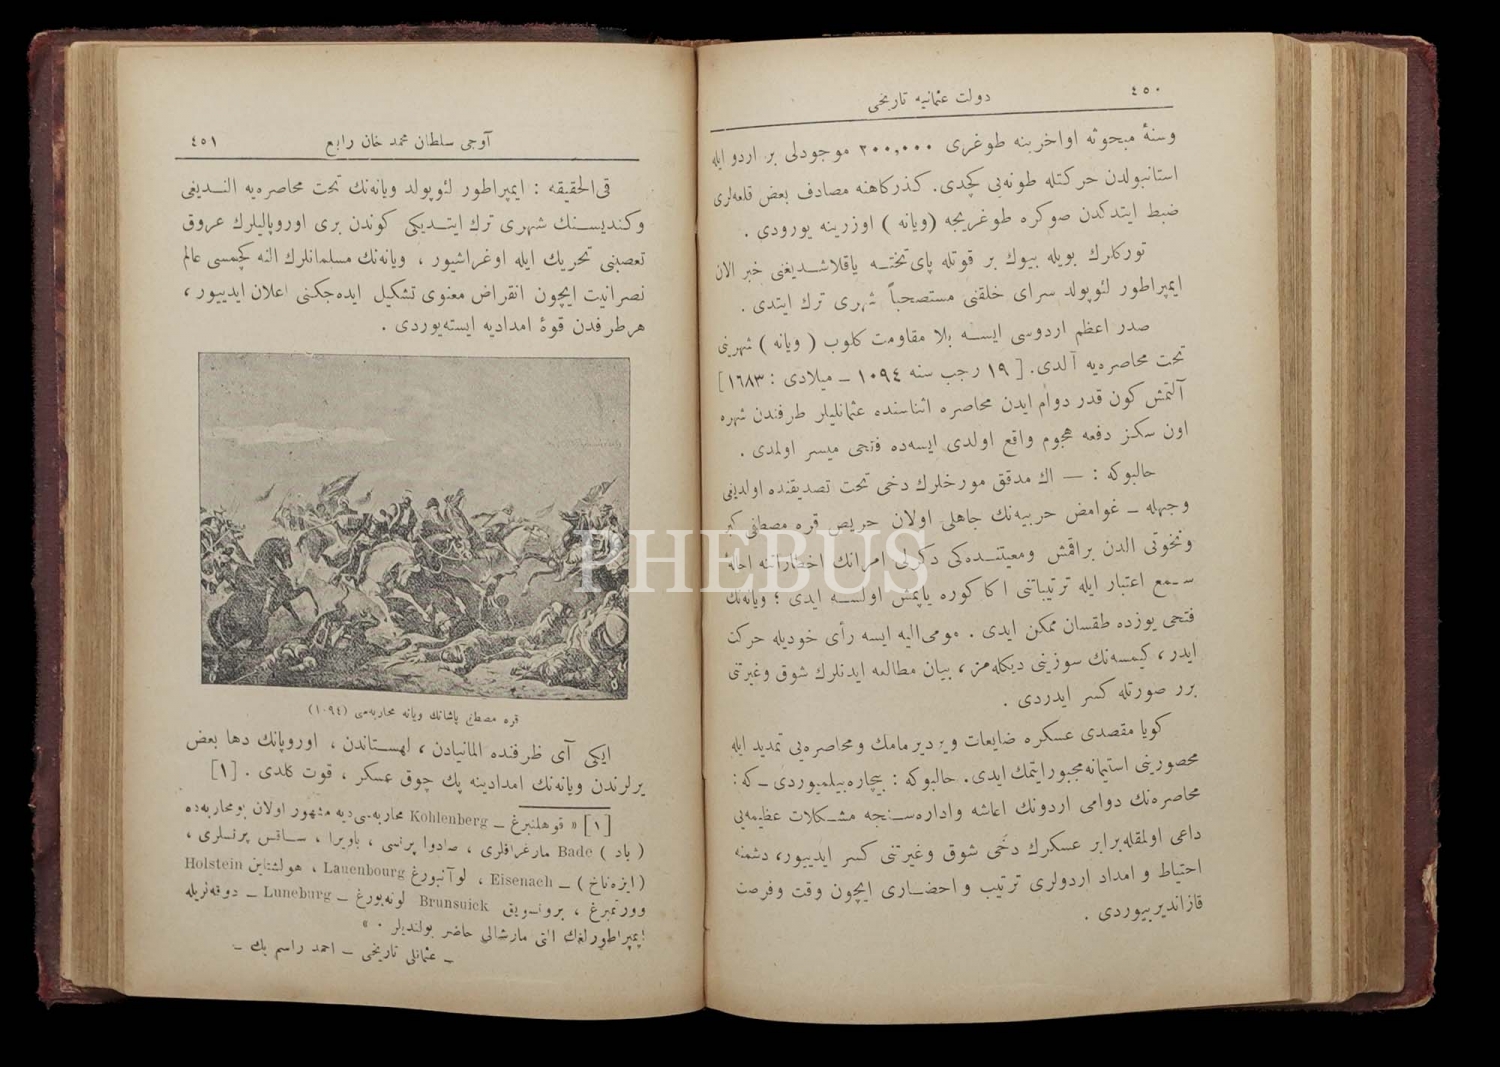 ٤٥٠
دولت عثمانیه تاریخی
وسنهٔ مبحوثه اواخرینه طوغری ٢٠٠,٠٠٠ موجودلی بر اردو ایله
استانبولدن حرکتله طونه‌یی کچدی. کذرکاهنه مصادف بعض قلعه‌لری
ضبط ایتدکدن صوکره طوغریجه (ویانه) اوزرینه یورودی .
تورکلرك بویله بیوك بر قوتله پای‌تخته یاقلاشدیغنی خبر الان
ایمپراطور لئوپولد سرای خلقنی مستصحباً شهری ترك ایتدی .
صدر اعظم اردوسی ایسه بلا مقاومت کلوب ( ویانه ) شهرینی
تحت محاصره‌یه آلدی. [ ١٩ رجب سنه ١٠٩٤ ــ میلادی : ١٦٨٣]
آلتمش کون قدر دوام ایدن محاصره اثناسنده عثمانلیلر طرفندن شهره
اون سکز دفعه هجوم واقع اولدی ایسه‌ده فتحی میسر اولمدی .
حالبوکه : — اك مدقق مورخلرك دخی تحت تصدیقنده اولدیغی
وجهله ــ غوامض حربیه‌نك جاهلی اولان حریص قره مصطفی کبر
ونخوتی الدن براقمش ومعیتنده‌کی دکرلی امرانك اخطاراتنه احالهٔ
سمع اعتبار ایله ترتیباتنی اکا کوره یاپمش اولسه ایدی ؛ ویانه‌نك
فتحی یوزده طقسان ممکن ایدی . مومی‌الیه ایسه رأی خودیله حرکت
ایدر ، کیمسه‌نك سوزینی دیکله‌مز ، بیان مطالعه ایدنلرك شوق وغیرتنی
برر صورتله کسر ایدردی .
کویا مقصدی عسکره ضایعات ویردیرمامك ومحاصره‌یی تمدید ایله
محصورینی استیمانه مجبور ایتمك ایدی. حالبوکه : بیچاره بیلمیوردی ــ که :
محاصره‌نك دوامی اردونك اعاشه واداره‌سنجه مشکلات عظیمه‌یی
داعی اولمقله برابر عسکرك دخی شوق وغیرتنی کسر ایدییور، دشمنه
احتیاط و امداد اردولری ترتیب و احضاری ایچون وقت وفرصت
قازاندیرییوردی .
آوجی سلطان محمد خان رابع
٤٥١
فی‌الحقیقه : ایمپراطور لئوپولد ویانه‌نك تحت محاصره‌یه الندیغی
وکندیسنك شهری ترك ایتدیکی کوندن بری اوروپالیلرك عروق
تعصبنی تحریك ایله اوغراشیور ، ویانه‌نك مسلمانلرك النه کچمسی عالم
نصرانیت ایچون انقراض معنوی تشکیل ایده‌جکنی اعلان ایدییور ،
هرطرفدن قوهٔ امدادیه ایسته‌یوردی .
قره مصطفی پاشانك ویانه محاربه‌سی (١٠٩٤)
ایکی آی ظرفنده المانیادن ، لهستاندن ، اوروپانك دها بعض
یرلرندن ویانه‌نك امدادینه پك چوق عسکر ، قوت کلدی . [١]
[١] « قوهلنبرغ ــ Kohlenberg محاربه‌سی دیه مشهور اولان بومحاربه‌ده
( باد ) Bade مارغرافلری ، صادوا پرنسی ، باویرا ، ساقس پرنسلری ،
( ایزه‌ناخ ) ــ Eisenach ، لوآنبورغ Lauenbourg ، هولشتاین Holstein
وورتمبرغ ، برونسویق Brunsuick لونه‌بورغ ــ Luneburg ــ دوقه‌لریله
ایمپراطورلغك التی مارشالی حاضر بولندیلر . »
ــ عثمانلی تاریخی ــ احمد راسم بك ــ
PHEBUS